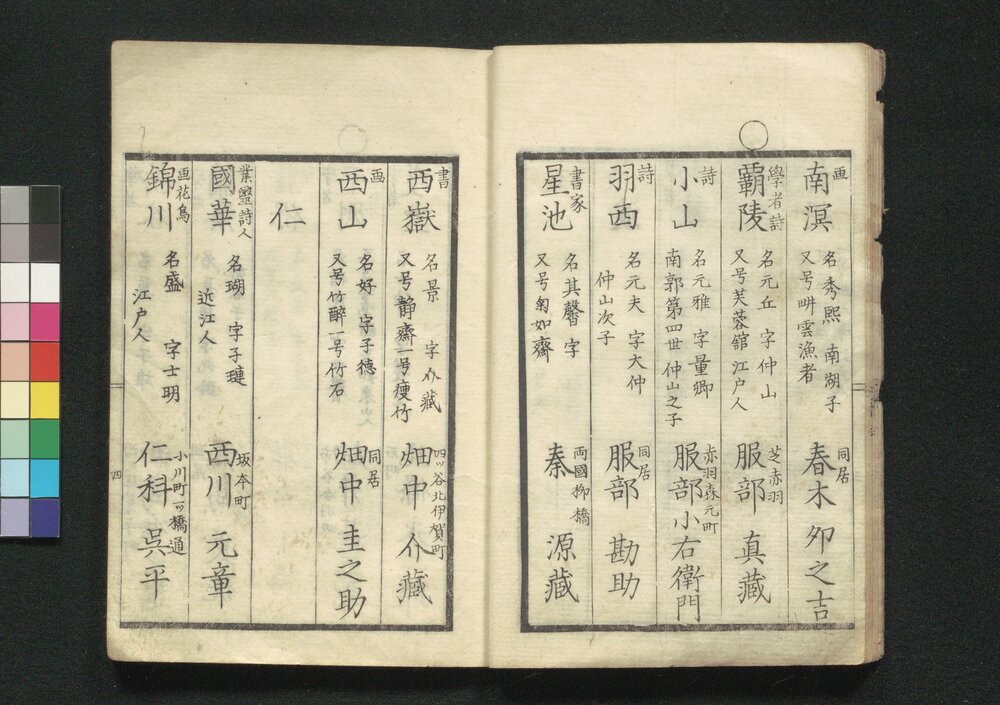 画
南溟
名秀熙 南湖子
又号畊雲漁者
同居
春木夘之吉
學者詩
覇陵
名元丘 字仲山
又号芙蓉舘 江户人
芝赤羽
服部 真藏
詩
小山
名元雅 字量卿
南郭第四世 仲山之子
赤羽森元町
服部小右衛門
詩
羽西
名元夫 字大仲
仲山次子
同居
服部 勘助
書家
星池
名其馨 字
又号匊如齋
両國柳橋
秦 源藏
書
西嶽
名景 字介藏
又号静齋 一号瘦竹
四ッ谷北伊賀町
畑中 介藏
画
西山
名好 字子德
又号竹醉 一号竹石
同居
畑中 圭之助
仁
業毉詩人
國華
名瑚 字子璉
近江人
坂本町
西川 元章
画花鳥
錦川
名盛 字士明
江户人
小川町一ッ橋通
仁科 呉平
四